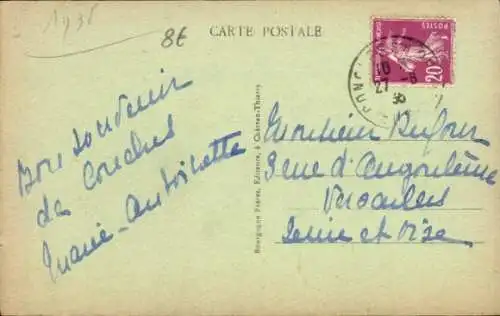 1938
8€
CARTE POSTALE
POSTES
20
18
27 -8
38
Bon souvenir
de Conches
Marie-Antoinette
Bourgogne Frères, Editeurs, à Château-Thierry
Monsieur Dufour
3 rue d'Angoulême
Versailles
Seine et Oise